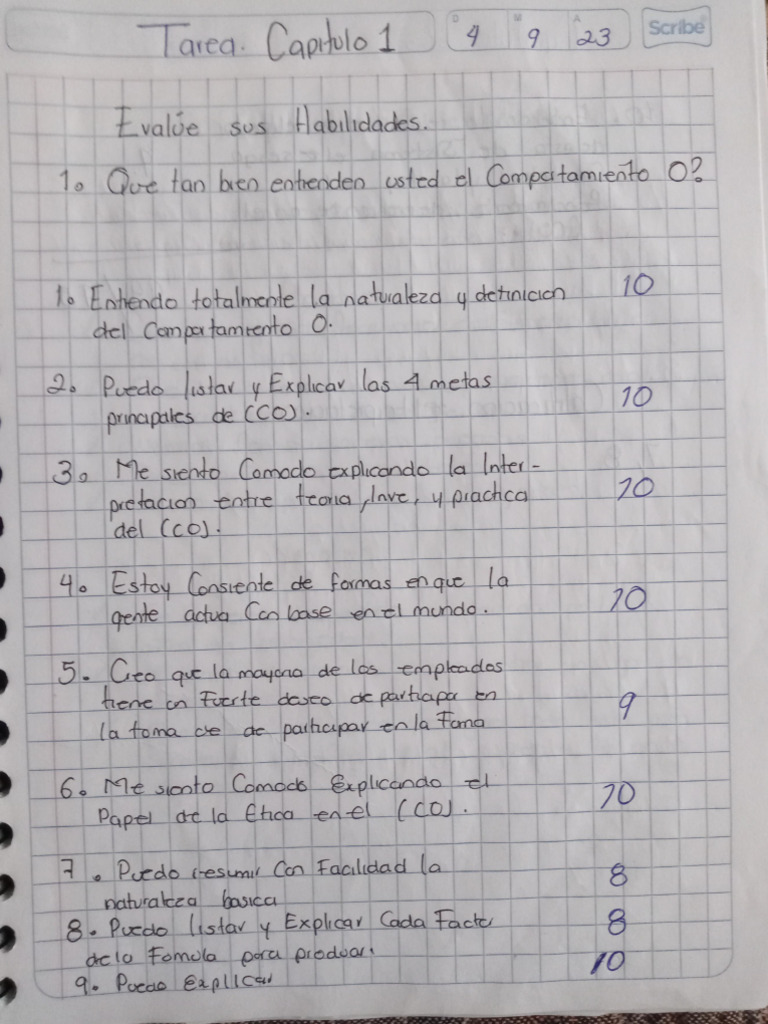 Tarea. Capitulo 1
D 4 M 9 A 23
Scribe
Evalúe sus Habilidades.
1. Que tan bien entienden usted el Compottamiento O?
1. Entiendo totalmente la naturaleza y definicion 10
del Comportamiento O.
2. Puedo listar y Explicar las 4 metas
principales de (CO). 10
3. Me siento Comodo explicando la Inter-
pretacion entre teoria, Inve, y practica 10
del (CO).
4. Estoy Consiente de formas en que la
gente actua Con base en el mundo. 10
5. Creo que la mayoria de los empleados
tiene un Fuerte deseo de participar en 9
la toma de de participar en la Toma
6. Me siento Comodo Explicando el
Papel de la Etica en el (CO). 10
7. Puedo resumir Con Facilidad la 8
naturaleza basica
8. Puedo listar y Explicar Cada Factor 8
de la Fomula para producir. 10
9. Puedo Explicar